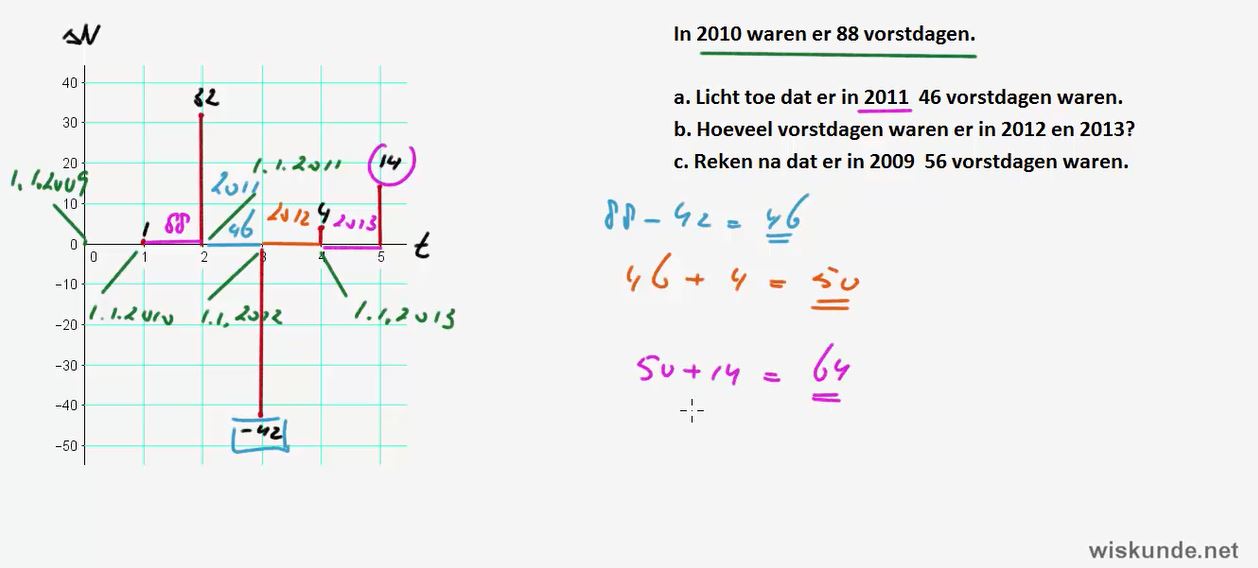 ΔN
In 2010 waren er 88 vorstdagen.
a. Licht toe dat er in 2011 46 vorstdagen waren.
b. Hoeveel vorstdagen waren er in 2012 en 2013?
c. Reken na dat er in 2009 56 vorstdagen waren.
40
30
20
10
0
-10
-20
-30
-40
-50
0 1 2 3 4 5 t
32
14
1.1.2009
1.1.2011
2011
1 88 46 2012 4 2013
1.1.2010 1.1.2012 1.1.2013
-42
88 - 42 = 46
46 + 4 = 50
50 + 14 = 64
wiskunde.net